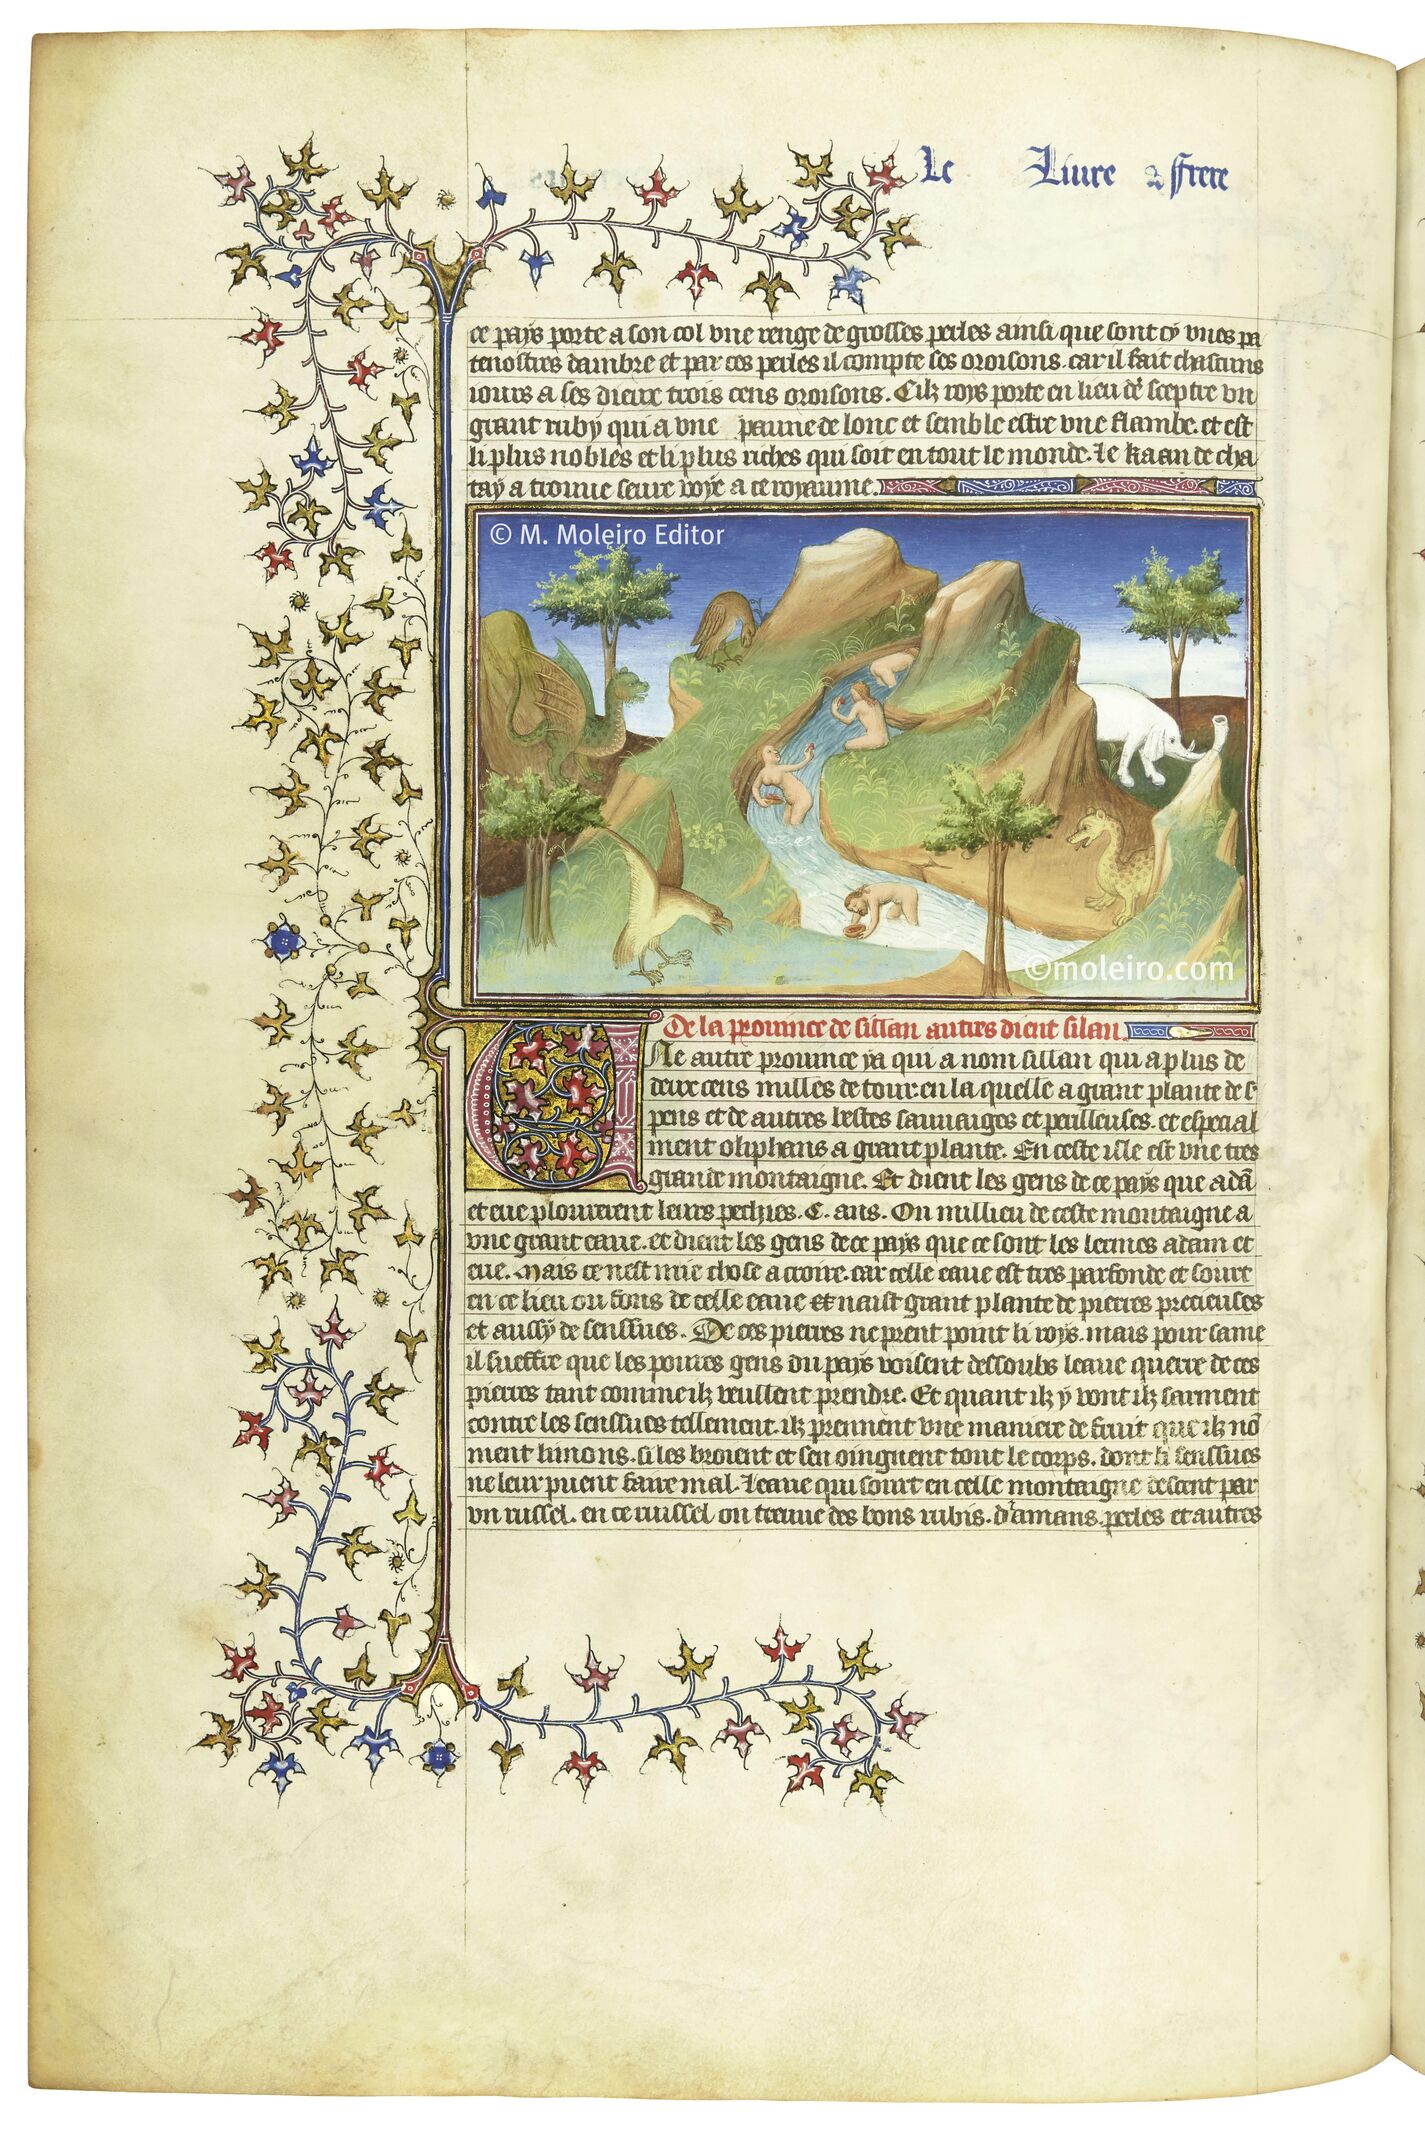 Le Liure de ffrere
ce pays porte a son col vne renge de grosses perles ainsi que sont cy vnes pa
tenostres dambre et par ces perles il compte ses oroisons. car il fait chascuns
iours a ses dieux trois cens oroisons. Cilz roys porte en lieu de sceptre vn
grant ruby qui a vne paume de lonc et semble estre vne flambe. et est
li plus nobles et li plus riches qui soit en tout le monde. Le kaan de cha
tay a trouue seure voye a ce royaume.
© M. Moleiro Editor
©moleiro.com
De la prouince de sillan autres dient silan.
Vne autre prouince ya qui a nom sillan qui a plus de
deux cens milles de tour. en la quelle a grant plante de s
pens et de autres bestes sauuaiges et perilleuses. et especial
ment oliphans a grant plante. En ceste isle est vne tres
grande montaigne. Et dient les gens de ce pays que adā
et eue plourerent leurs pechies. C. ans. Ou millieu de ceste montaigne a
vne grant eaue. et dient les gens de ce pays que ce sont les lermes adam et
eue. Mais ce nest mie chose a croire. car celle eaue est tres parfonde et sourt
en ce lieu ou fons de celle eaue et naist grant plante de pierres precieuses
et aussy de senssues. De ces pierres ne prent point li roys. mais pour same
il sueffre que les poures gens du pays voisent dessoubs leaue querre de ces
pierres tant comme ilz veullent prendre. Et quant ilz y vont ilz sarment
contre les senssues tellement. ilz prennent vne maniere de fruit que ilz nō
ment limons. si les broient et sen oinguent tout le corps. dont li senssues
ne leur puent faire mal. Leaue qui sourt en celle montaigne descent par
vn russel. en ce ruissel on treuue des bons rubis. dyamans. perles et autres